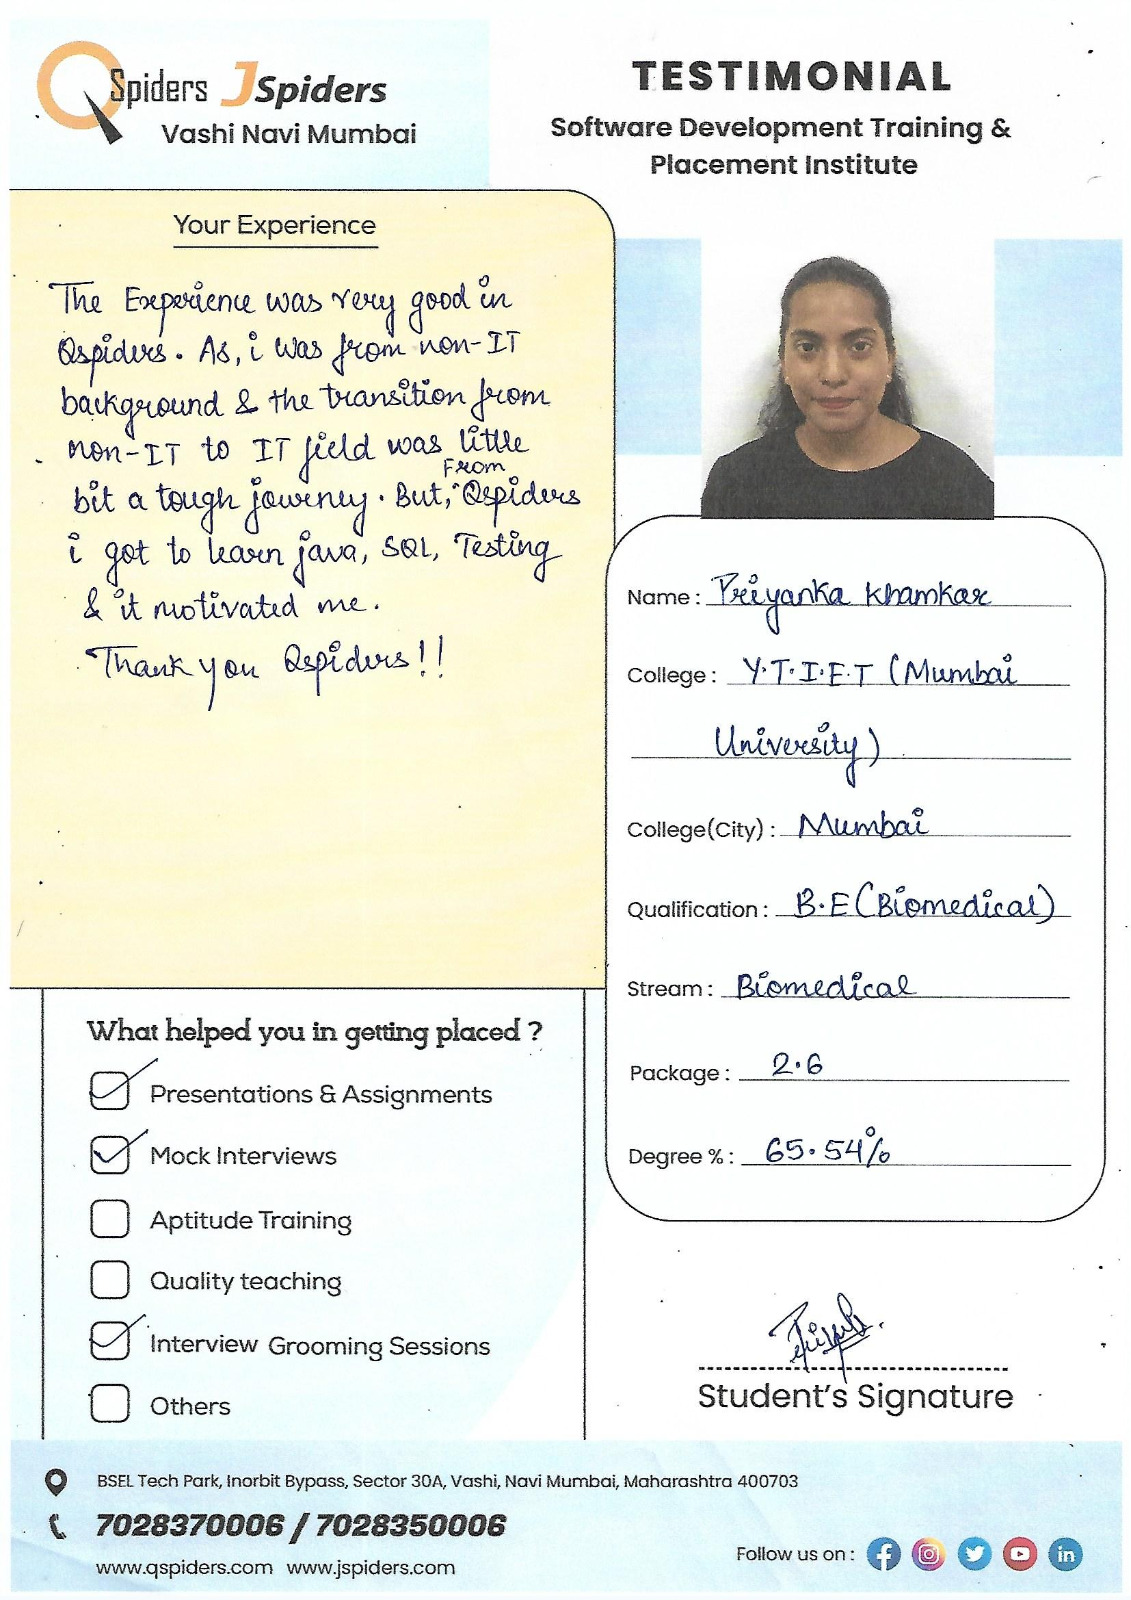 QSpiders JSpiders
Vashi Navi Mumbai
TESTIMONIAL
Software Development Training &
Placement Institute
Your Experience
The Experience was very good in
Qspiders. As, i was from non-IT
background & the transition from
non-IT to IT field was little
bit a tough journey. But, From Qspiders
i got to learn java, SQL, Testing
& it motivated me.
Thank you Qspiders!!
Name : Priyanka Khamkar
College : Y.T.I.E.T (Mumbai
University)
College(City) : Mumbai
Qualification : B.E (Biomedical)
Stream : Biomedical
Package : 2.6
Degree % : 65.54%
What helped you in getting placed ?
Presentations & Assignments
Mock Interviews
Aptitude Training
Quality teaching
Interview Grooming Sessions
Others
Student's Signature
BSEL Tech Park, Inorbit Bypass, Sector 30A, Vashi, Navi Mumbai, Maharashtra 400703
7028370006 / 7028350006
www.qspiders.com www.jspiders.com
Follow us on :